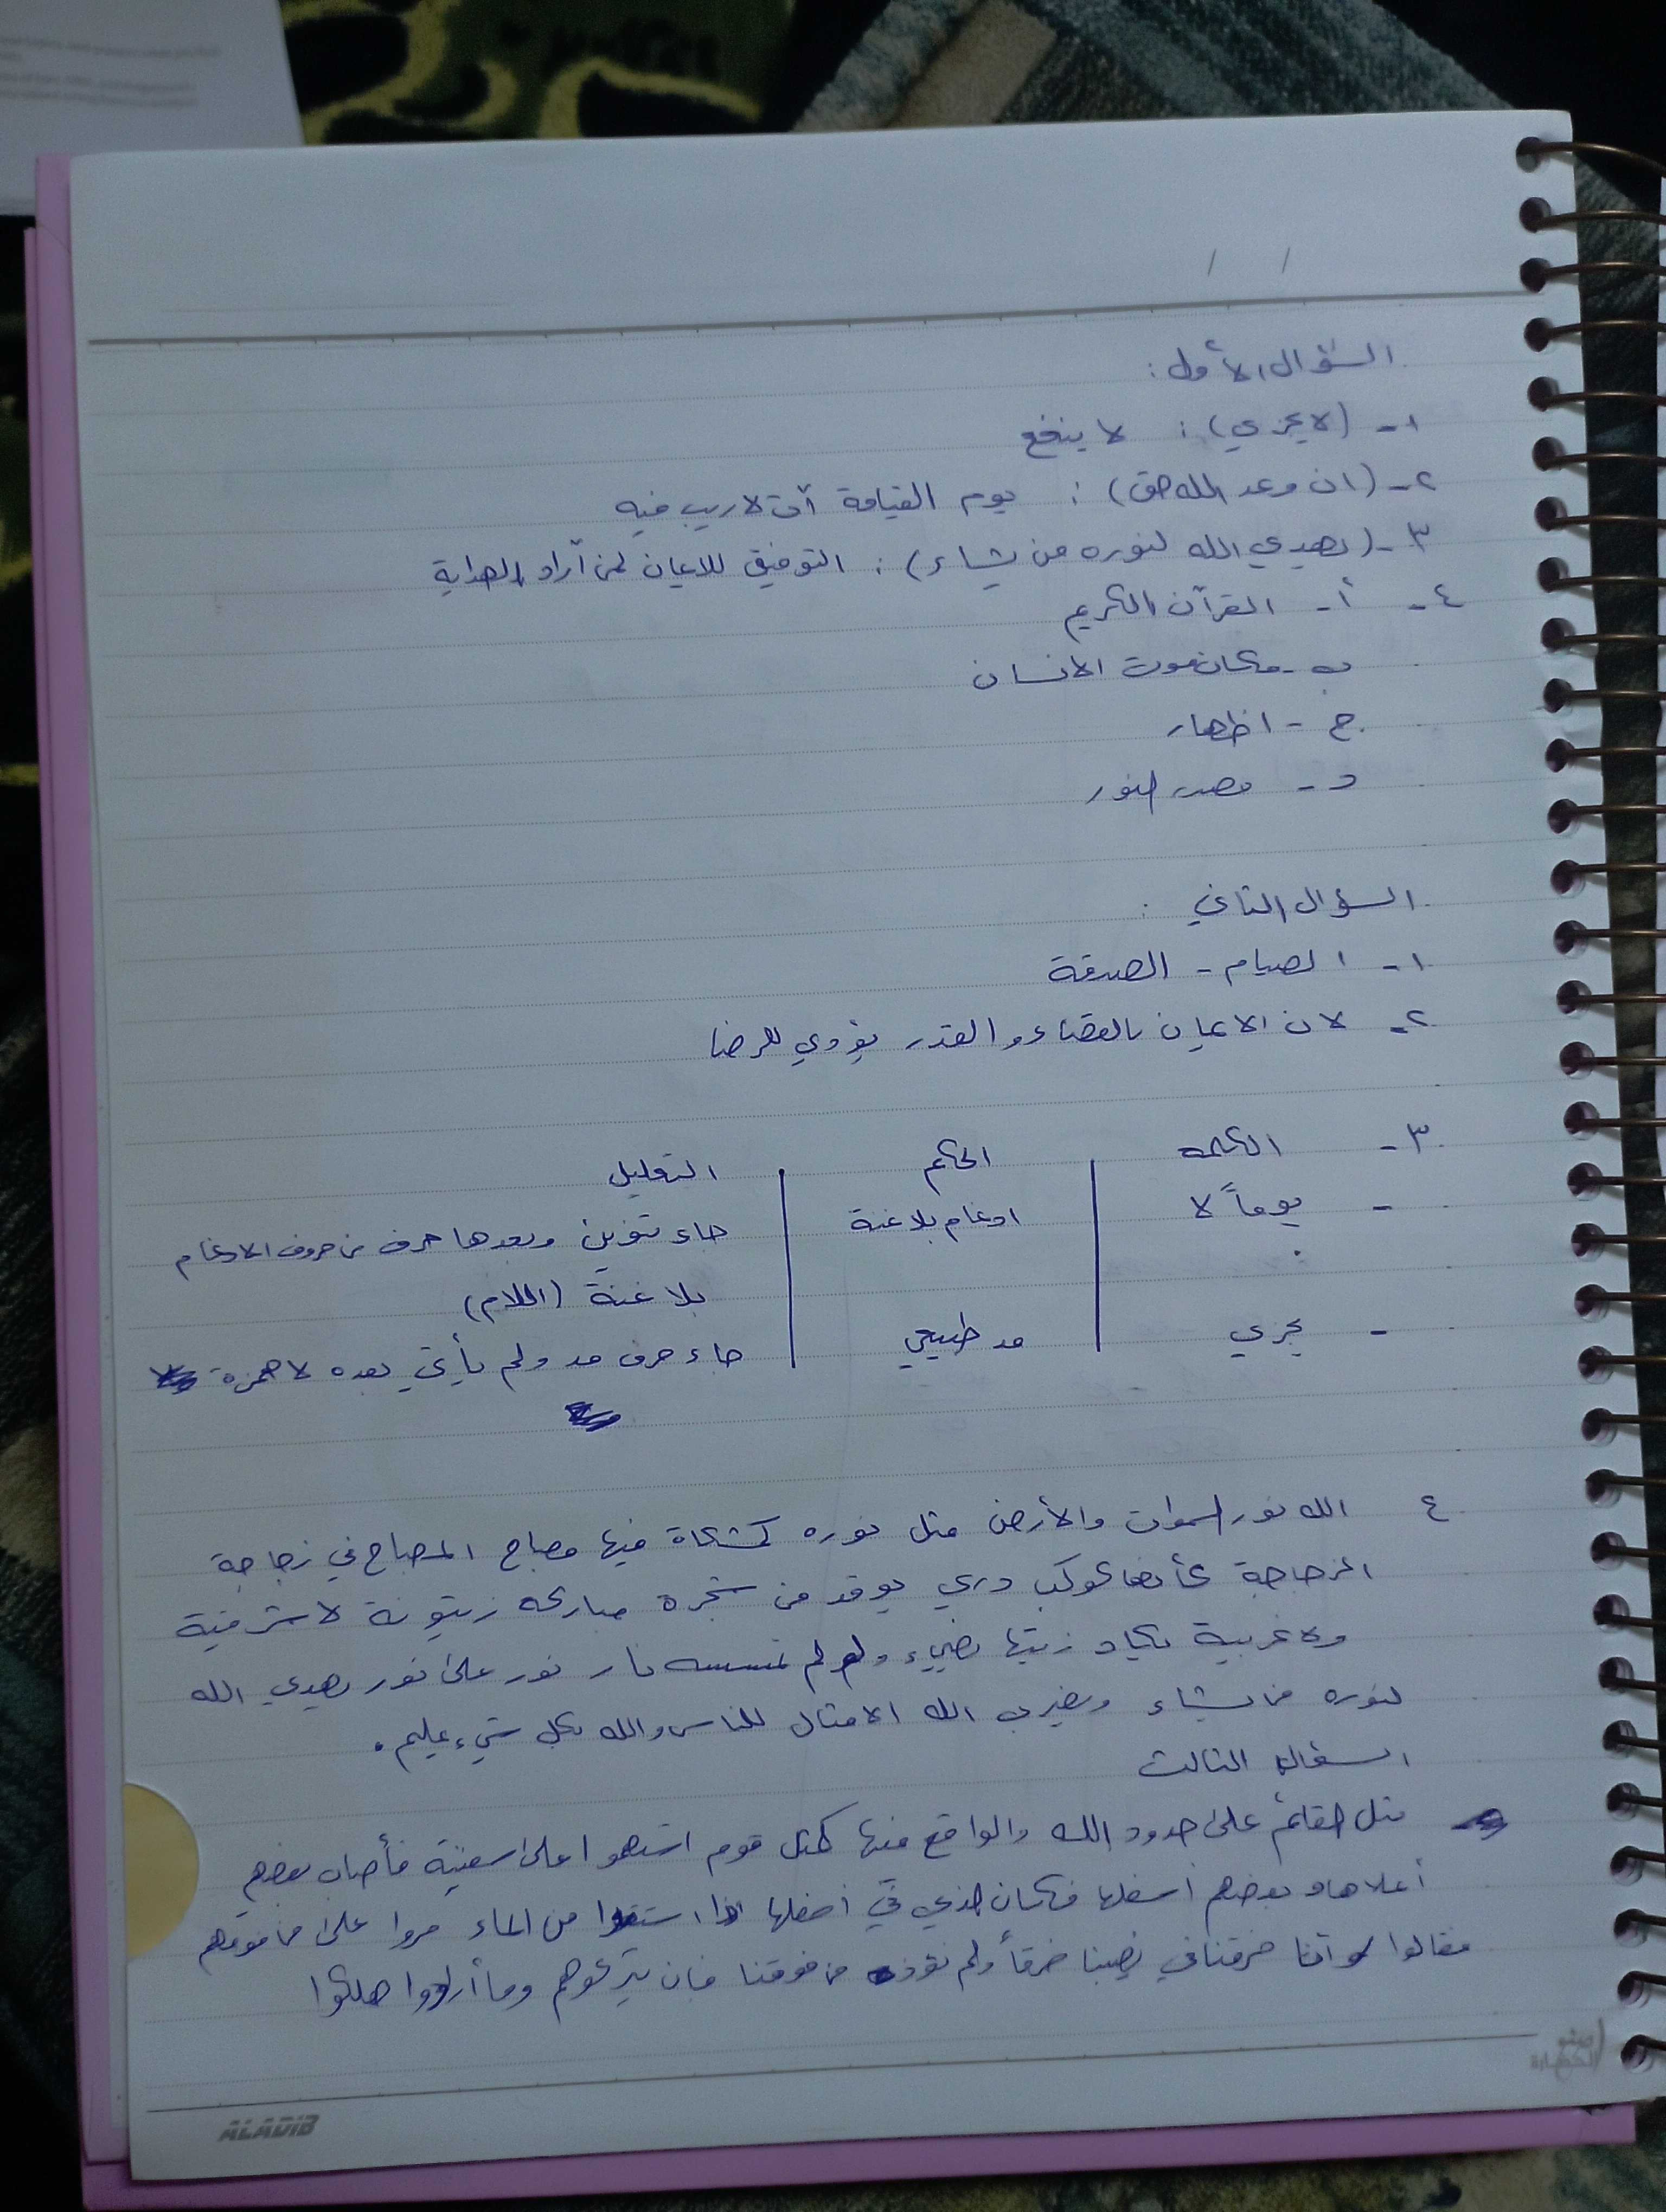 السؤال الأول:
١- (لا يجزي): لا ينفع
٢- (ان وعد الله حق): يوم القيامة آت لا ريب فيه
٣- (يهدي الله لنوره من يشاء): التوفيق للايمان لمن أراد الهداية
٤- أ- القرآن الكريم
ب- مكان موت الانسان
ج- اظهار
د- مصدر النور
السؤال الثاني:
١- الصيام - الصدقة
٢- لان الايمان بالقضاء والقدر يؤدي للرضا
٣- الكلمة الحكم التعليل
- يوماً لا ادغام بلا غنة جاء تنوين وبعدها حرف من حروف الادغام
بلا غنة (اللام)
- يجزي مد طبيعي جاء حرف مد ولم يأتي بعده لا همزة
٤ الله نور السموات والأرض مثل نوره كمشكاة فيها مصباح المصباح في زجاجة
الزجاجة كأنها كوكب دري يوقد من شجرة مباركه زيتونة لا شرقية
ولا غربية يكاد زيتها يضيء ولو لم تمسسه نار نور على نور يهدي الله
لنوره من يشاء ويضرب الله الامثال للناس والله بكل شيء عليم.
السؤال الثالث
مثل القائم على حدود الله والواقع فيها كمثل قوم استهموا على سفينة فأصاب بعضهم
أعلاها وبعضهم أسفلها فكان الذي في أسفلها اذا استقوا من الماء مروا على من فوقهم
فقالوا لو أننا خرقنا في نصيبنا خرقاً ولم نؤذ من فوقنا فان يتركوهم وما أرادوا هلكوا
ALADIB